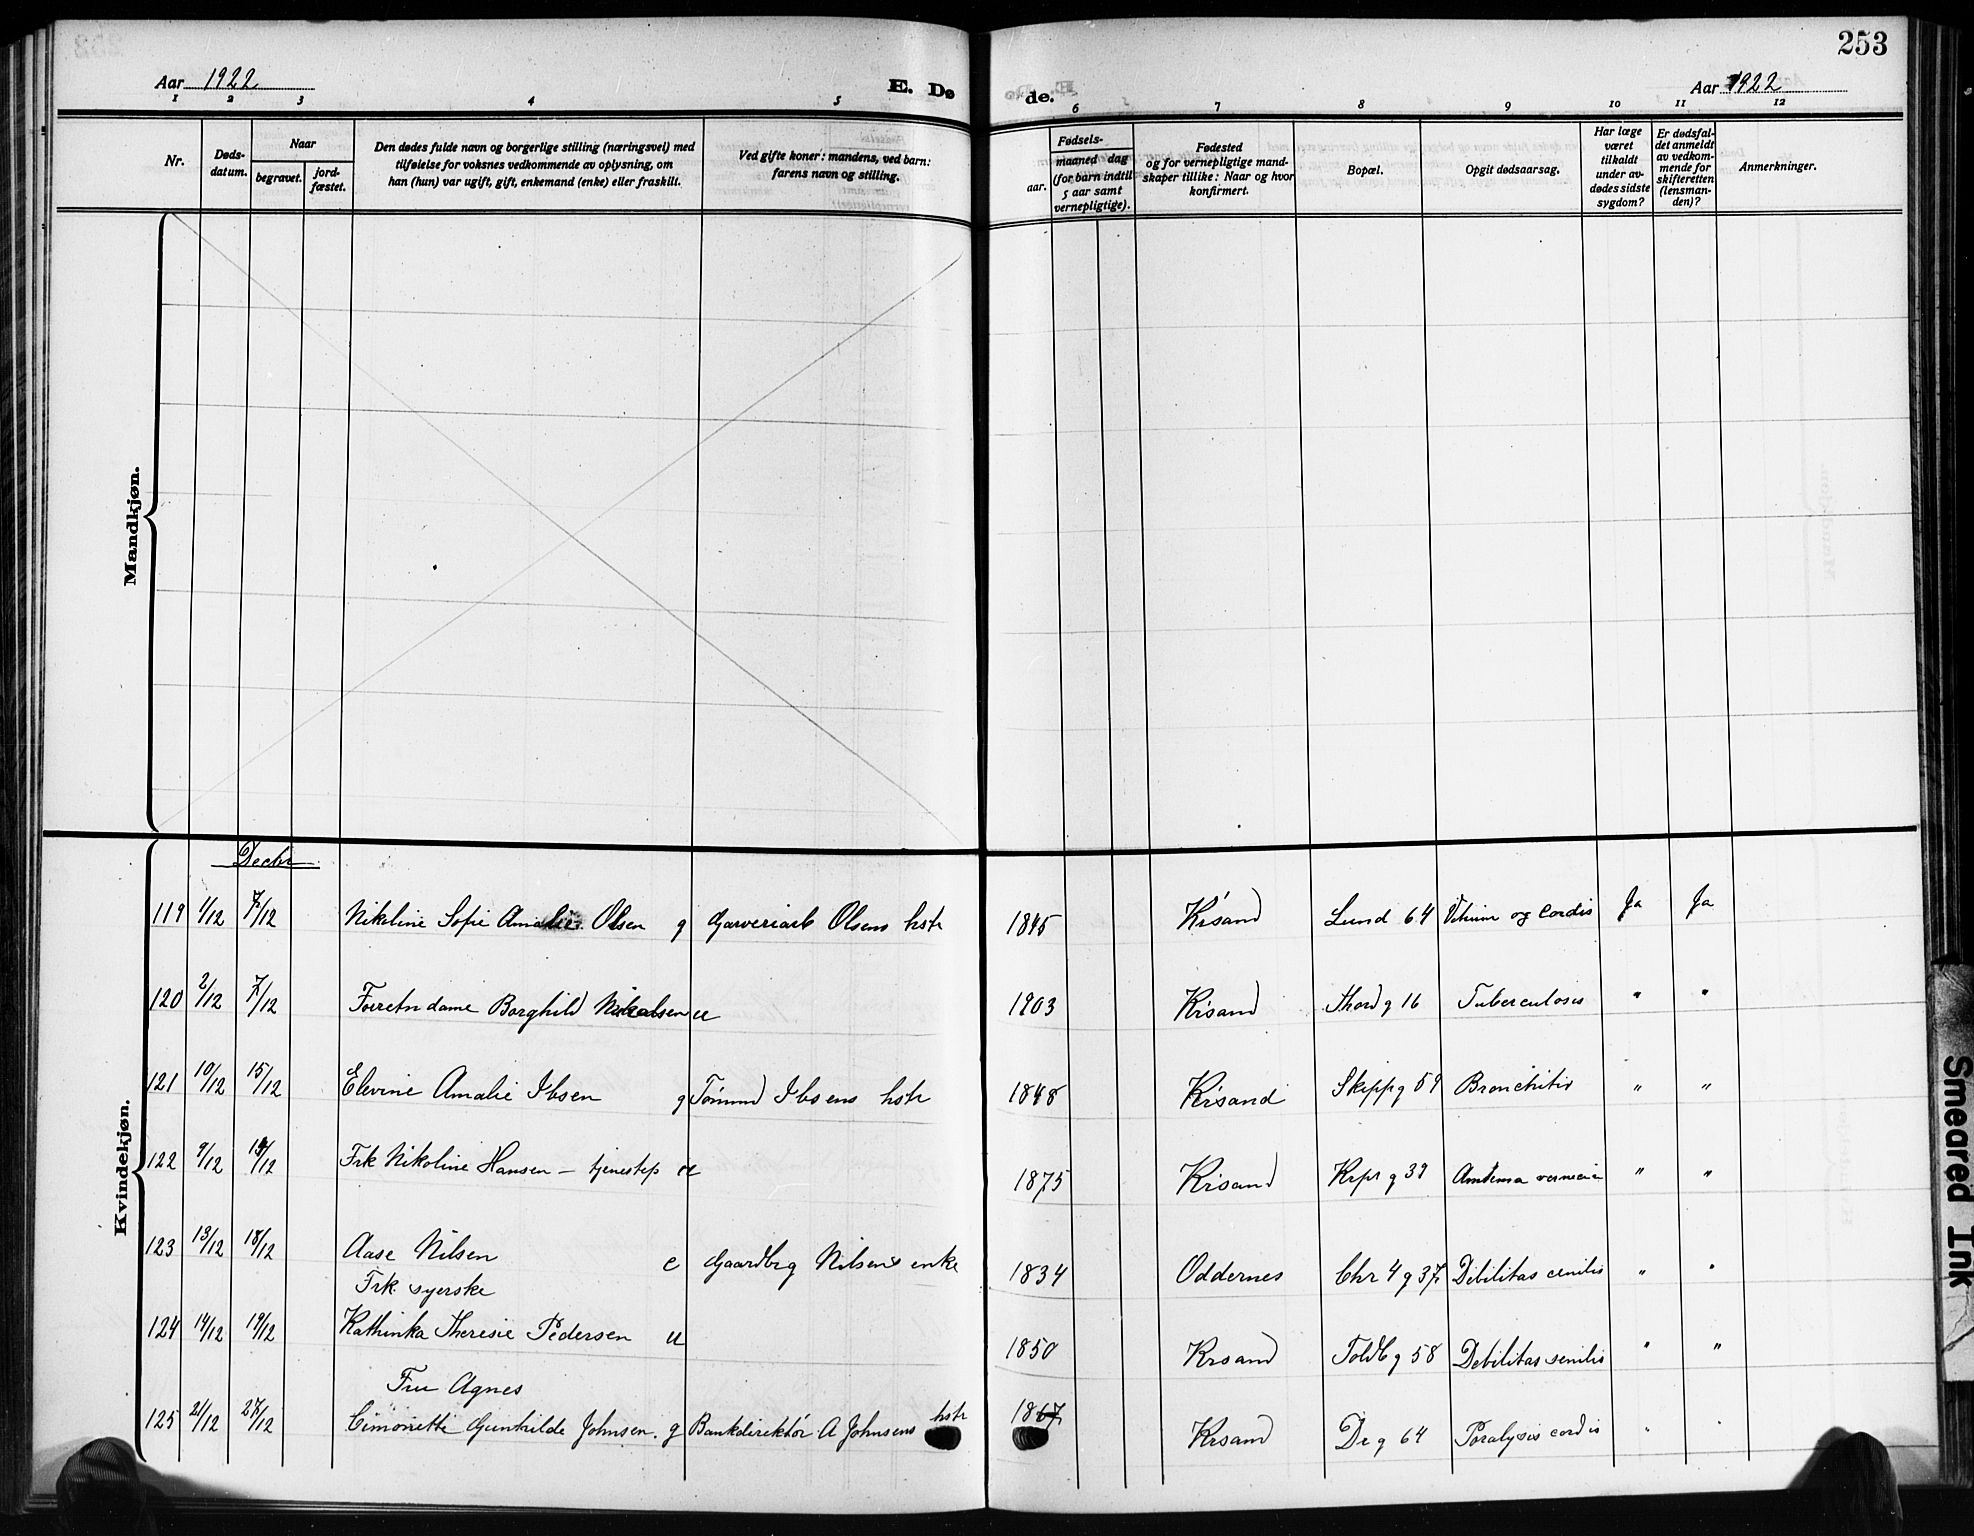 253
Aar 1922
E. Dø
de.
Aar 1922
1 2 3 4 5 6 7 8 9 10 11 12
Nr.
Døds-
datum.
Naar
begravet.
jord-
fæstet.
Den dødes fulde navn og borgerlige stilling (næringsvei) med
tilføielse for voksnes vedkommende av oplysning, om
han (hun) var ugift, gift, enkemand (enke) eller fraskilt.
Ved gifte koner: mandens, ved barn:
farens navn og stilling.
Fødsels-
aar.
maaned dag
(for barn indtil
5 aar samt
vernepligtige).
Fødested
og for vernepligtige mand-
skaper tillike: Naar og hvor
konfirmert.
Bopæl.
Opgit dødsaarsag.
Har læge
været
tilkaldt
under av-
dødes sidste
sygdom?
Er dødsfal-
det anmeldt
av vedkom-
mende for
skifteretten
(lensman-
den)?
Anmerkninger.
Mandkjøn.
Kvindekjøn.
Decbr
119 1/12 7/12 Nikoline Sofie Amalie Olsen g Garveriarb Olsens hstr 1845 Krsand Lund 64 Vitium og Cordis Ja Ja
120 2/12 7/12 Forretn dame Borghild Nikolaisen u 1903 Krsand Thord g 16 Tuberculosis " "
121 10/12 15/12 Elevine Amalie Ibsen g Tømmd Ibsens hstr 1848 Krsand Skippg 59 Bronchitis " "
122 9/12 14/12 Frk Nikoline Hansen – tjenestep u 1875 Krsand Krpr g 39 " "
123 13/12 18/12 Aase Nilsen e Gaardbrg Nilsens enke 1834 Oddernes Chr 4 g 37 Debilitas senilis " "
Frk. syerske
124 14/12 19/12 Kathinka Theresie Pedersen u 1850 Krsand Toldb g 58 Debilitas senilis " "
Fru Agnes
125 21/12 27/12 Simonette Gunhilde Johnsen. g Bankdirektør A Johnsens hstr 1867 Krsand Dr g 64 Paralysis cordis "
Smeared Ink